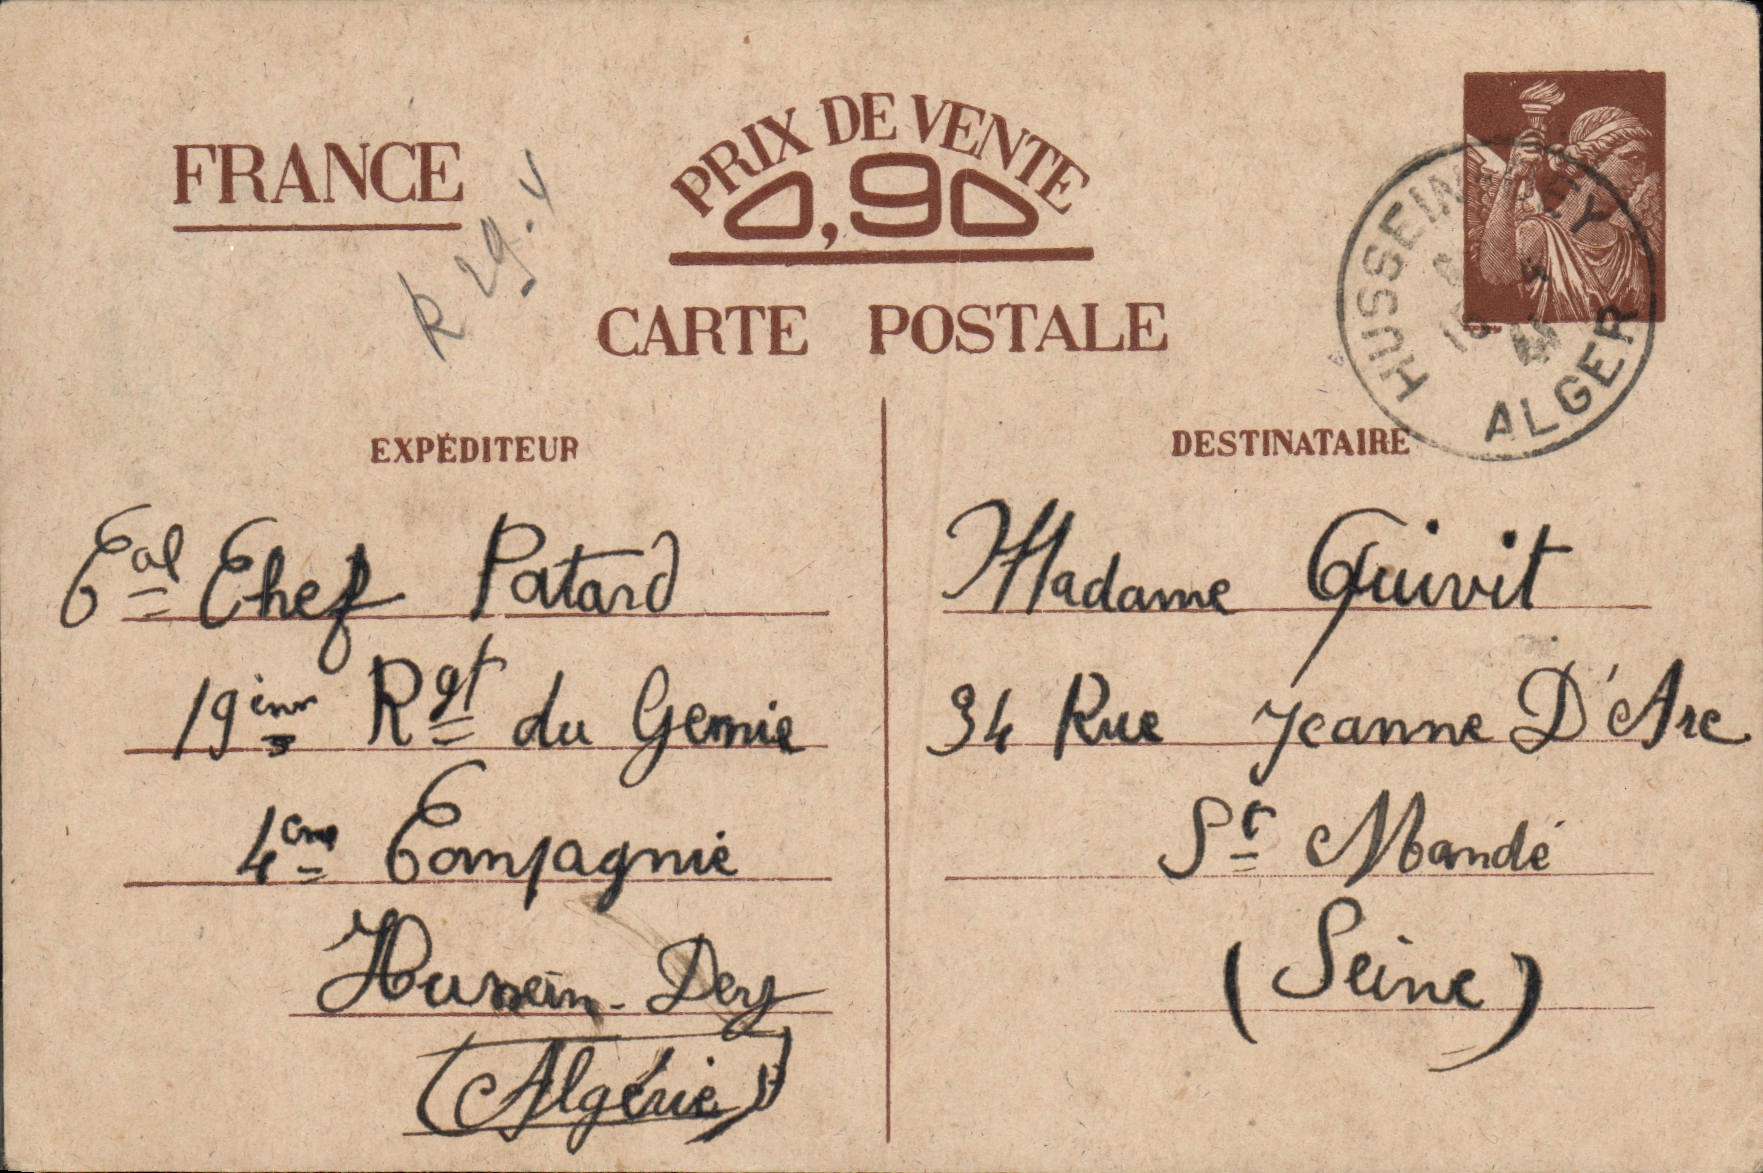 FRANCE
PRIX DE VENTE
0,90
CARTE POSTALE
R 29.4
HUSSEIN-DEY
ALGER
EXPÉDITEUR
Cal Chef Patard
19ème Rgt du Genie
4eme Compagnie
Hussein-Dey
(Algérie)
DESTINATAIRE
Madame Quivit
34 Rue Jeanne D'Arc
St Mandé
(Seine)